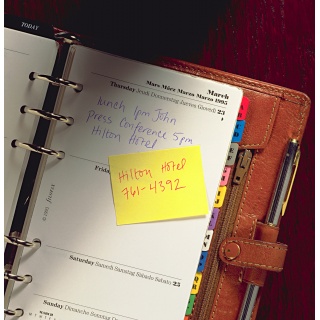 TODAY
March
Mars März Marzo Marzo 1995
Thursday Jeudi Donnerstag Jueves Giovedì 23
lunch 1pm John
Press Conference 5pm
Hilton Hotel
Hilton Hotel
761-4392
Frid
Saturday Samedi Samstag Sábado Sabato 25
Sunday Dimanche Sonntag Do